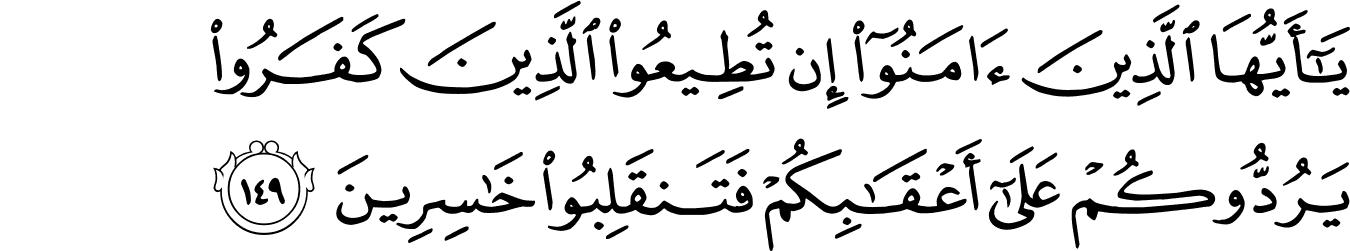 يَـٰٓأَيُّهَا ٱلَّذِينَ ءَامَنُوٓا۟ إِن تُطِيعُوا۟ ٱلَّذِينَ كَفَرُوا۟
يَرُدُّوكُمْ عَلَىٰٓ أَعْقَـٰبِكُمْ فَتَنقَلِبُوا۟ خَـٰسِرِينَ ١٤٩